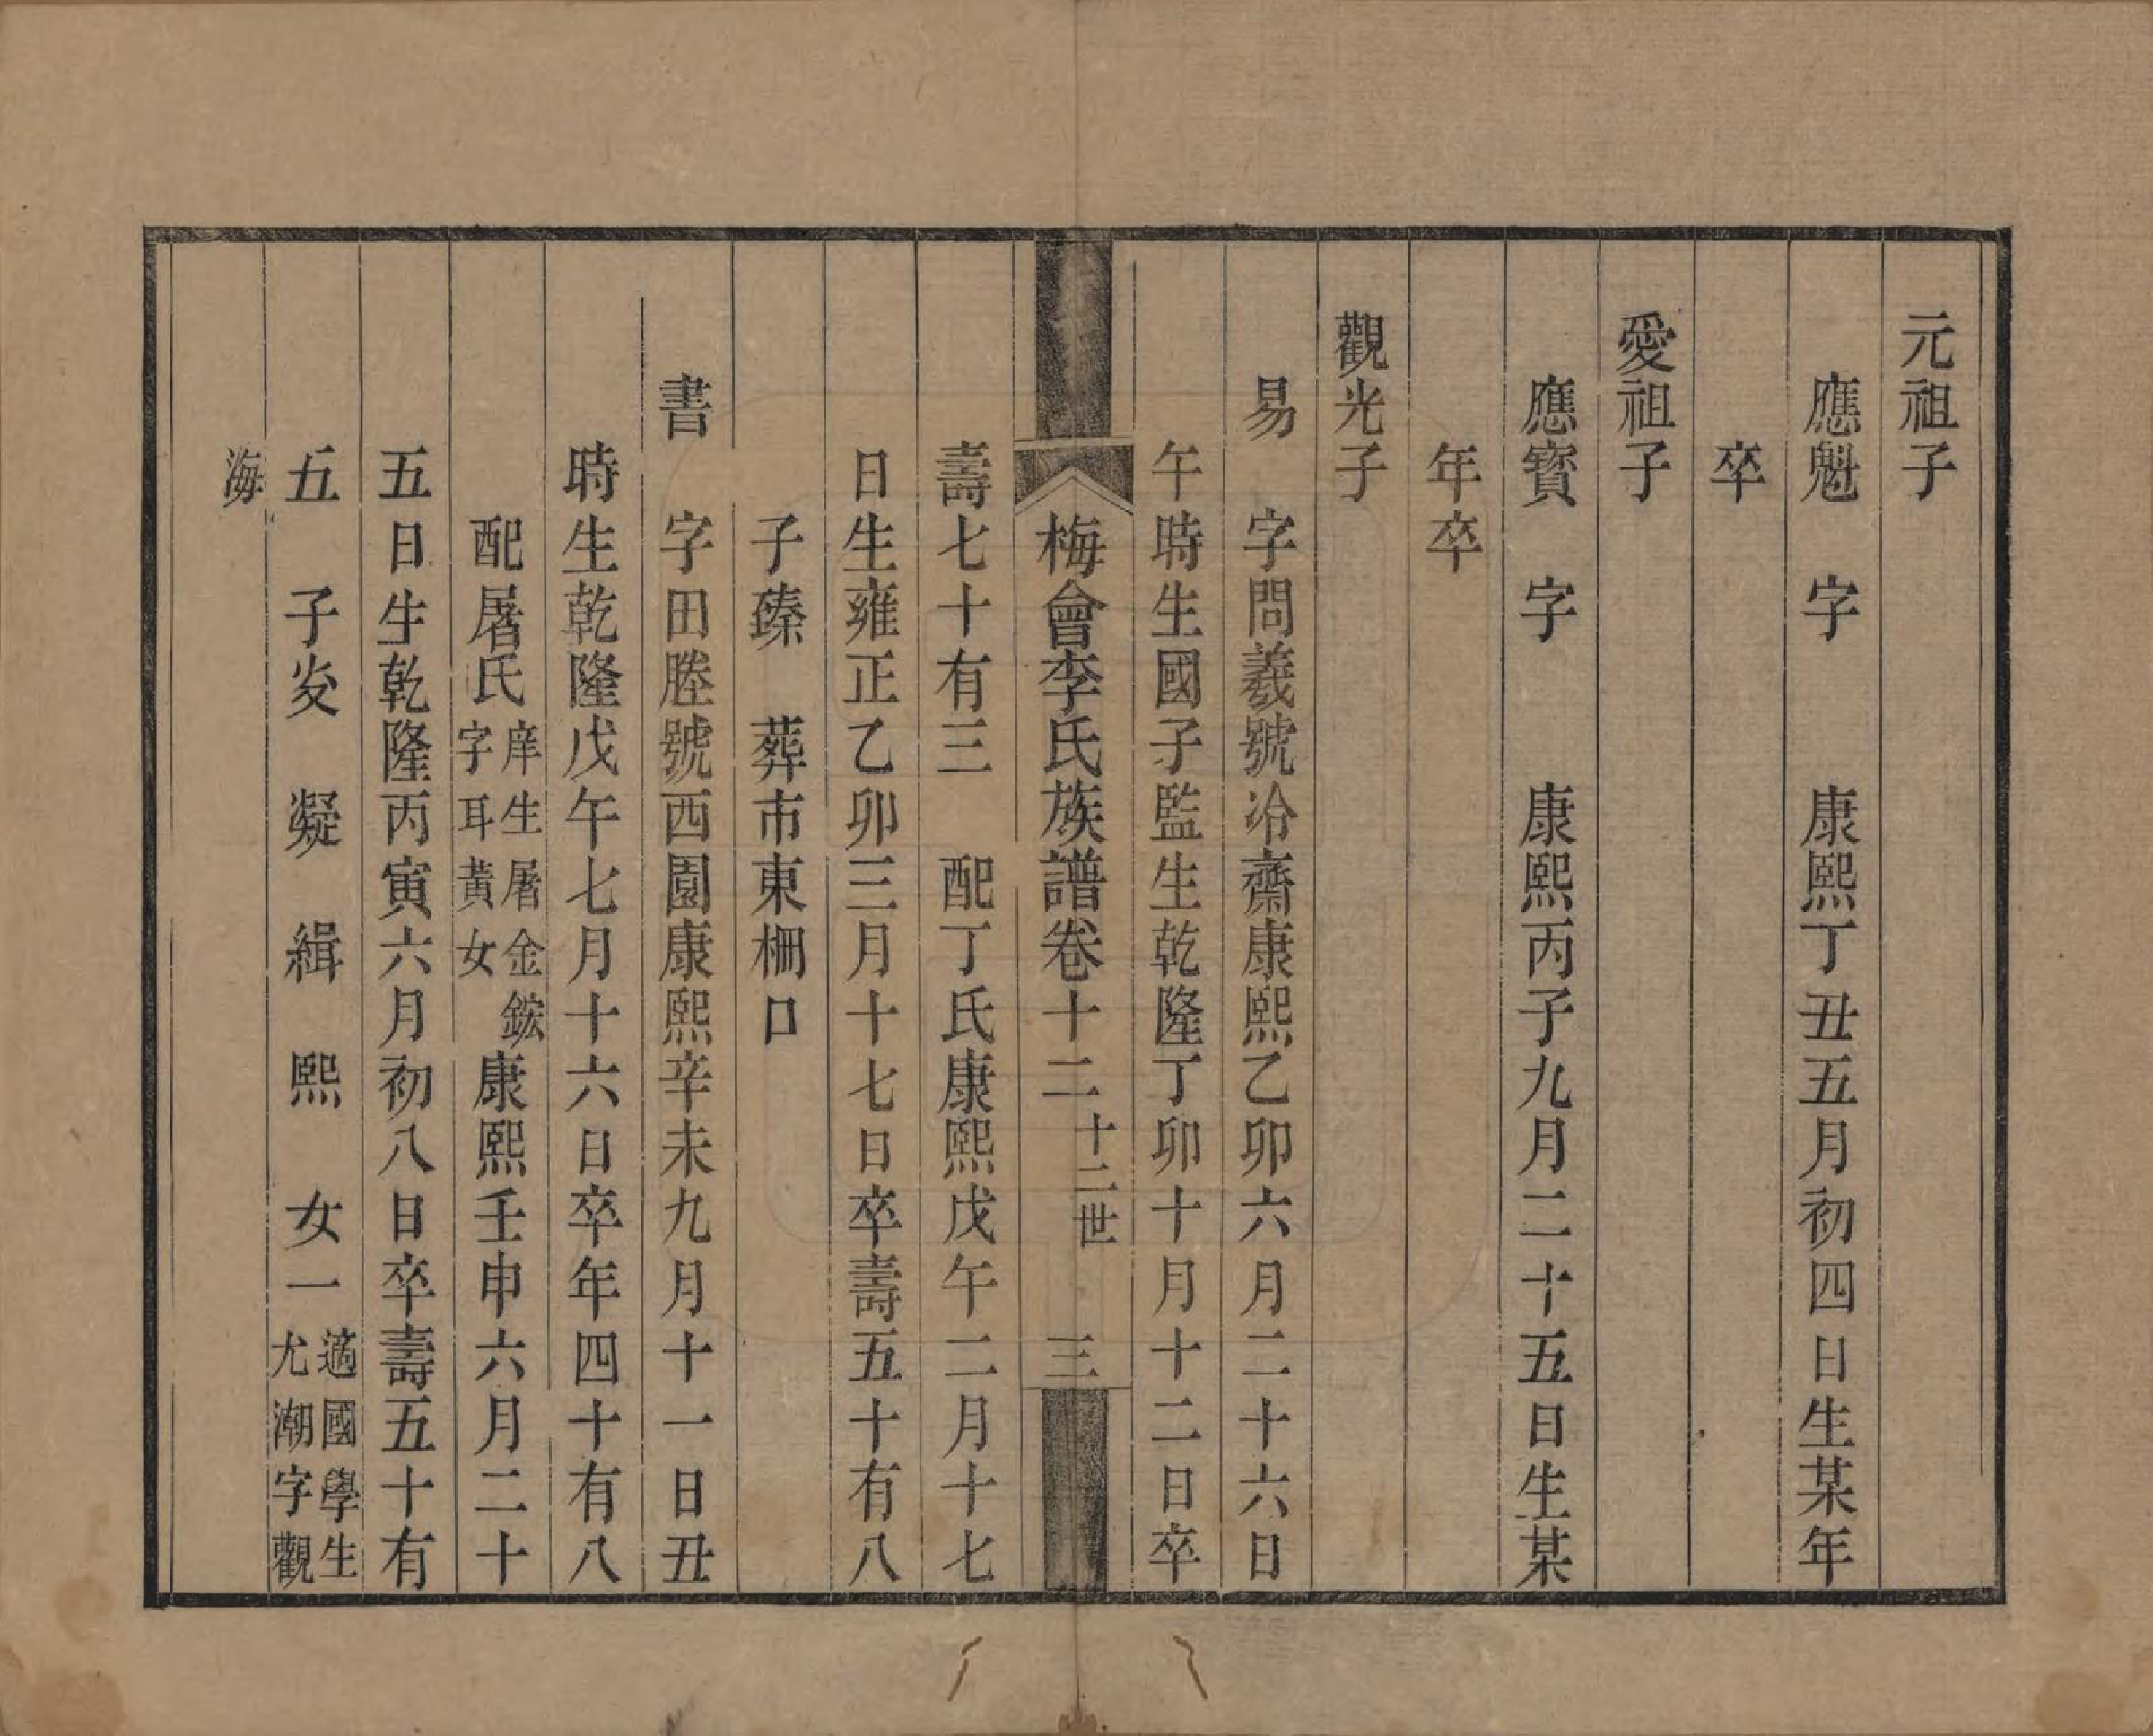 元祖子
應魁　字　　康熙丁丑五月初四日生某年
卒
愛祖子
應寳　字　　康熙丙子九月二十五日生某
年卒
觀光子
易　字問羲號冾齋康熙乙卯六月二十六日
午時生國子監生乾隆丁卯十月十二日卒
梅會李氏族譜卷十二 十二世　三
壽七十有三　配丁氏康熙戊午二月十七
日生雍正乙卯三月十七日卒壽五十有八
子臻　葬市東柵口
書　字田塍號西園康熙辛未九月十一日丑
時生乾隆戊午七月十六日卒年四十有八
配屠氏庠生屠金鋐字耳黃女康熙壬申六月二十
五日生乾隆丙寅六月初八日卒壽五十有
五　子炗　凝　緝　熙　女一適國學生尤潮字觀
海